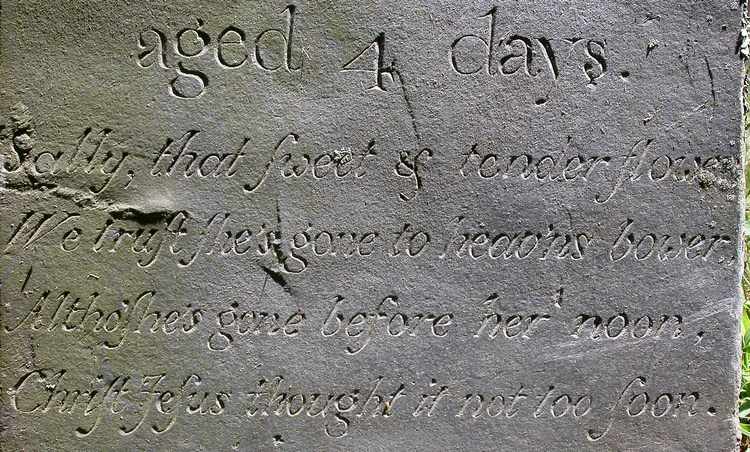 aged 4 days.
Sally, that ſweet & tender flower
We truſt ſhe's gone to heav'ns bower,
Altho' ſhe's gone before her noon,
Chriſt Jeſus thought it not too ſoon.